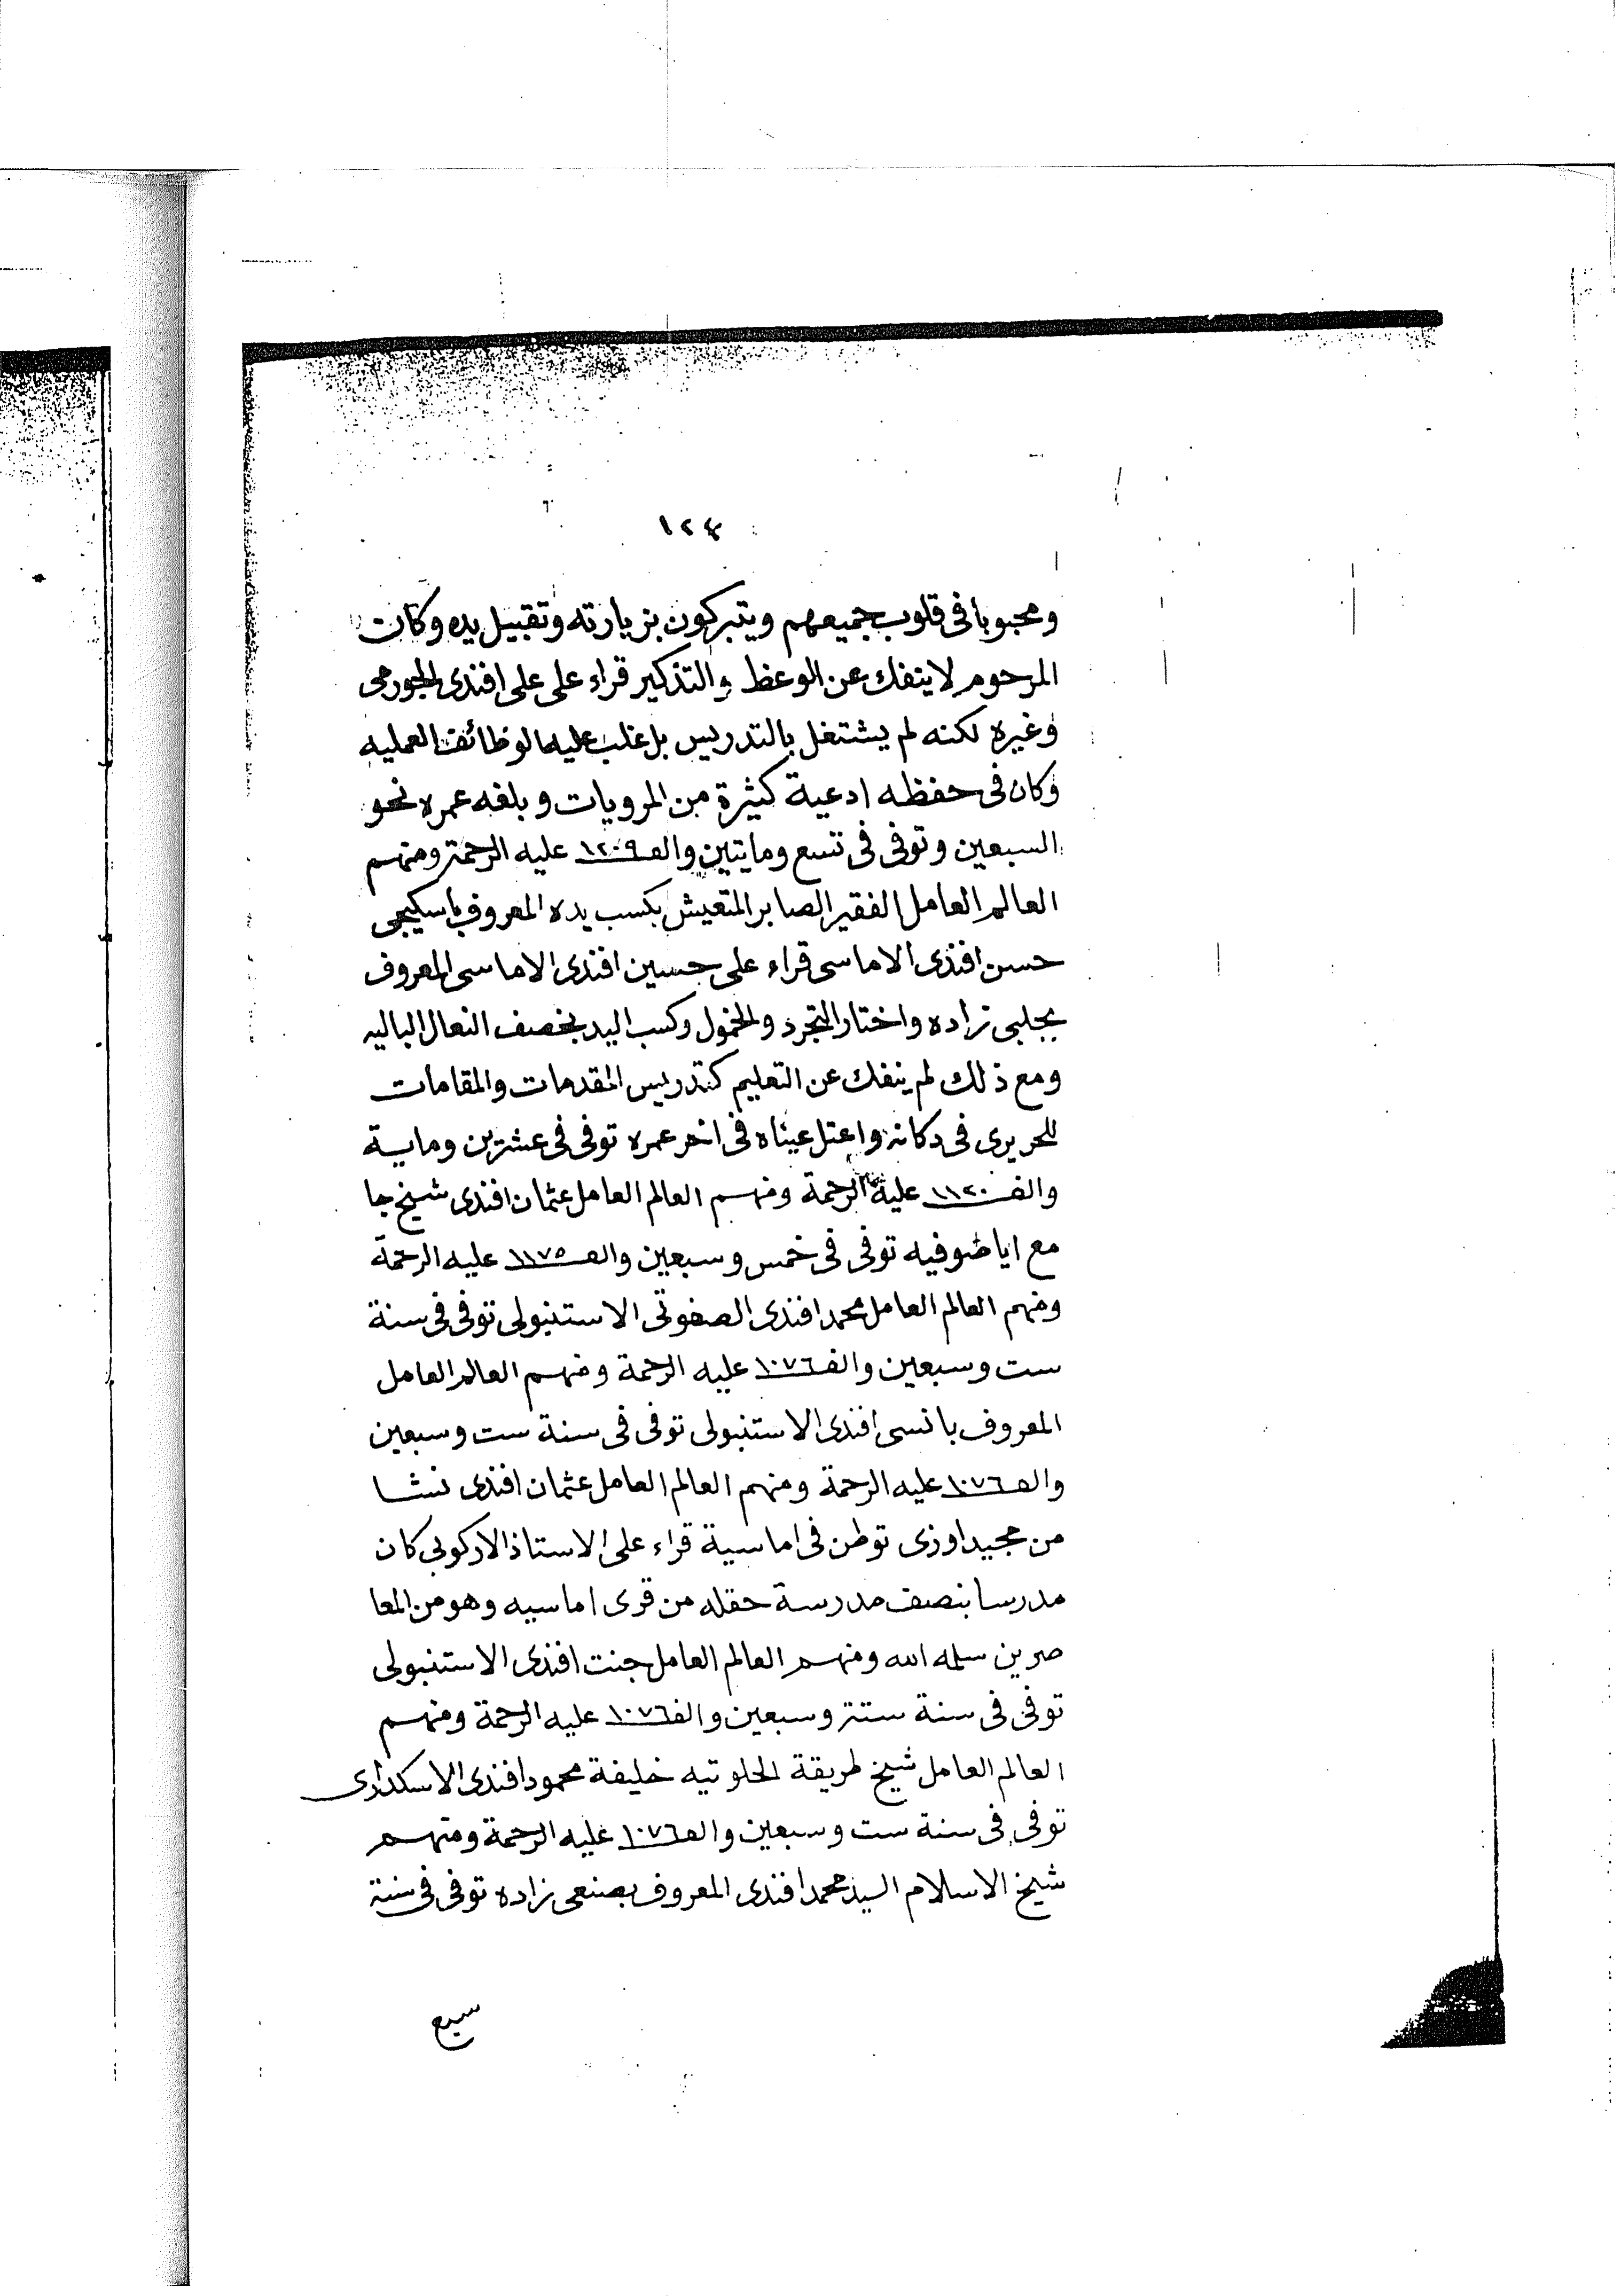 ١٢٤
ومحبوبا فى قلوب جميعهم ويتبركون بزيارته وتقبيل يده وكان
المرحوم لا ينفك عن الوعظ والتذكير قراء على على افندى الجورمى
وغيره لكنه لم يشتغل بالتدريس بل غلب عليه الوظائف العمليه
وكان فى حفظه ادعية كثيرة من المرويات وبلغه عمره نحو
السبعين وتوفى فى تسع ومايتين والف ١٢٠٩ عليه الرحمة ومنهم
العالم العامل الفقير الصابر المتعيش بكسب يده المعروف باسكيجى
حسن افندى الاماسى قراء على حسين افندى الاماسى المعروف
بجلبى زاده واختار التجرد والخمول وكسب اليد بخصف النعال الباليه
ومع ذلك لم ينفك عن التعليم كتدريس المقدمات والمقامات
للحريرى فى دكانه واعتل عيناه فى اخر عمره توفى فى عشرين وماية
والف ١١٢٠ عليه الرحمة ومنهم العالم العامل عثمان افندى شيخ جا
مع اياصوفيه توفى فى خمس وسبعين والف ١١٧٥ عليه الرحمة
ومنهم العالم العامل محمد افندى الصفوتى الاستنبولى توفى فى سنة
ست وسبعين والف ١٠٧٦ عليه الرحمة ومنهم العالم العامل
المعروف بانسى افندى الاستنبولى توفى فى سنة ست وسبعين
والف ١٠٧٦ عليه الرحمة ومنهم العالم العامل عثمان افندى نشا
من مجيد اوزى توطن فى اماسية قراء على الاستاذ الادكوبى كان
مدرسا بنصف مدرسة حقله من قرى اماسيه وهو من المعا
صرين سلمه الله ومنهم العالم العامل جنت افندى الاستنبولى
توفى فى سنة ستة وسبعين والف ١٠٧٦ عليه الرحمة ومنهم
العالم العامل شيخ طريقة الخلوتيه خليفة محمود افندى الاسكدارى
توفى فى سنة ست وسبعين والف ١٠٧٦ عليه الرحمة ومنهم
شيخ الاسلام السيد محمد افندى المعروف بصنعى زاده توفى فى سنة
سبع